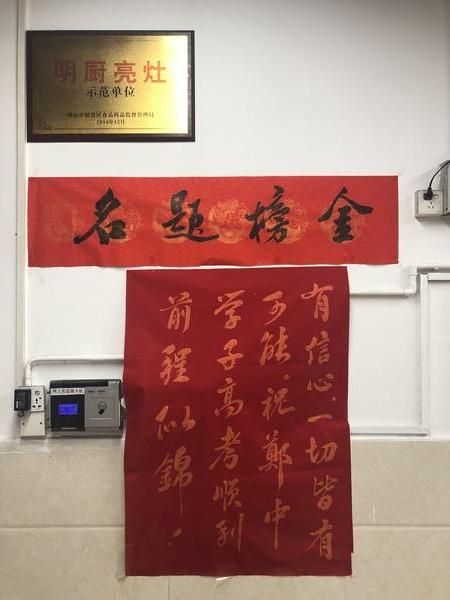 明厨亮灶
示范单位
佛山市顺德区食品药品监督管理局
2016年12月
金榜题名
有信心,一切皆有
可能。祝鄭中
学子高考顺利
前程似錦!